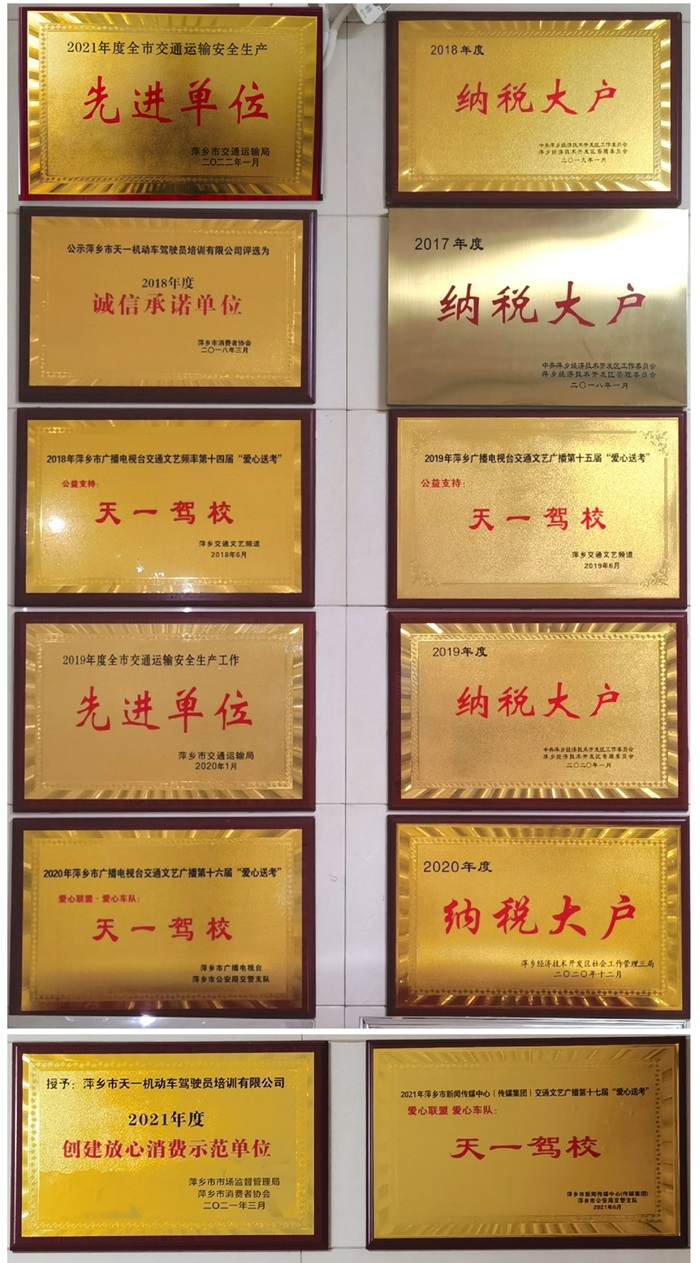 2021年度全市交通运输安全生产
先进单位
萍乡市交通运输局
二〇二二年一月
2018年度
纳税大户
中共萍乡经济技术开发区工作委员会
萍乡经济技术开发区管理委员会
二〇一九年一月
公示萍乡市天一机动车驾驶员培训有限公司评选为
2018年度
诚信承诺单位
萍乡市消费者协会
二〇一八年三月
2017年度
纳税大户
中共萍乡经济技术开发区工作委员会
萍乡经济技术开发区管理委员会
二〇一八年一月
2018年萍乡市广播电视台交通文艺频率第十四届“爱心送考”
公益支持：
天一驾校
萍乡交通文艺频道
2018年6月
2019年萍乡广播电视台交通文艺广播第十五届“爱心送考”
公益支持：
天一驾校
萍乡交通文艺频道
2019年6月
2019年度全市交通运输安全生产工作
先进单位
萍乡市交通运输局
2020年1月
2019年度
纳税大户
中共萍乡经济技术开发区工作委员会
萍乡经济技术开发区管理委员会
二〇二〇年一月
2020年萍乡市广播电视台交通文艺广播第十六届“爱心送考”
爱心联盟·爱心车队：
天一驾校
萍乡市广播电视台
萍乡市公安局交警支队
2020年度
纳税大户
萍乡经济技术开发区社会工作管理三局
二〇二〇年十二月
授予：萍乡市天一机动车驾驶员培训有限公司
2021年度
创建放心消费示范单位
萍乡市市场监督管理局
萍乡市消费者协会
二〇二一年三月
2021年萍乡市新闻传媒中心（传媒集团）交通文艺广播第十七届“爱心送考”
爱心联盟 爱心车队：
天一驾校
萍乡市新闻传媒中心(传媒集团)
萍乡市公安局交警支队
2021年6月